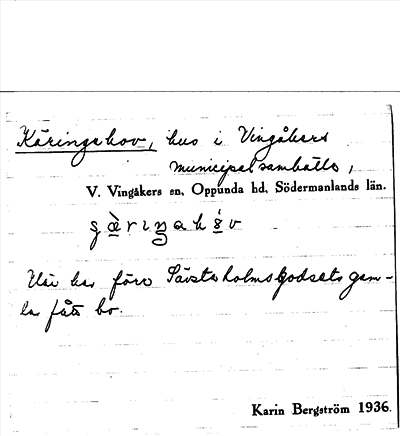 Käringahov, hus i Vingåkers
municipalsamhälle,
V. Vingåkers sn, Oppunda hd, Södermanlands län.
Här har förr Sävstaholmsgodsets gam-
la fått bo.
Karin Bergström 1936.